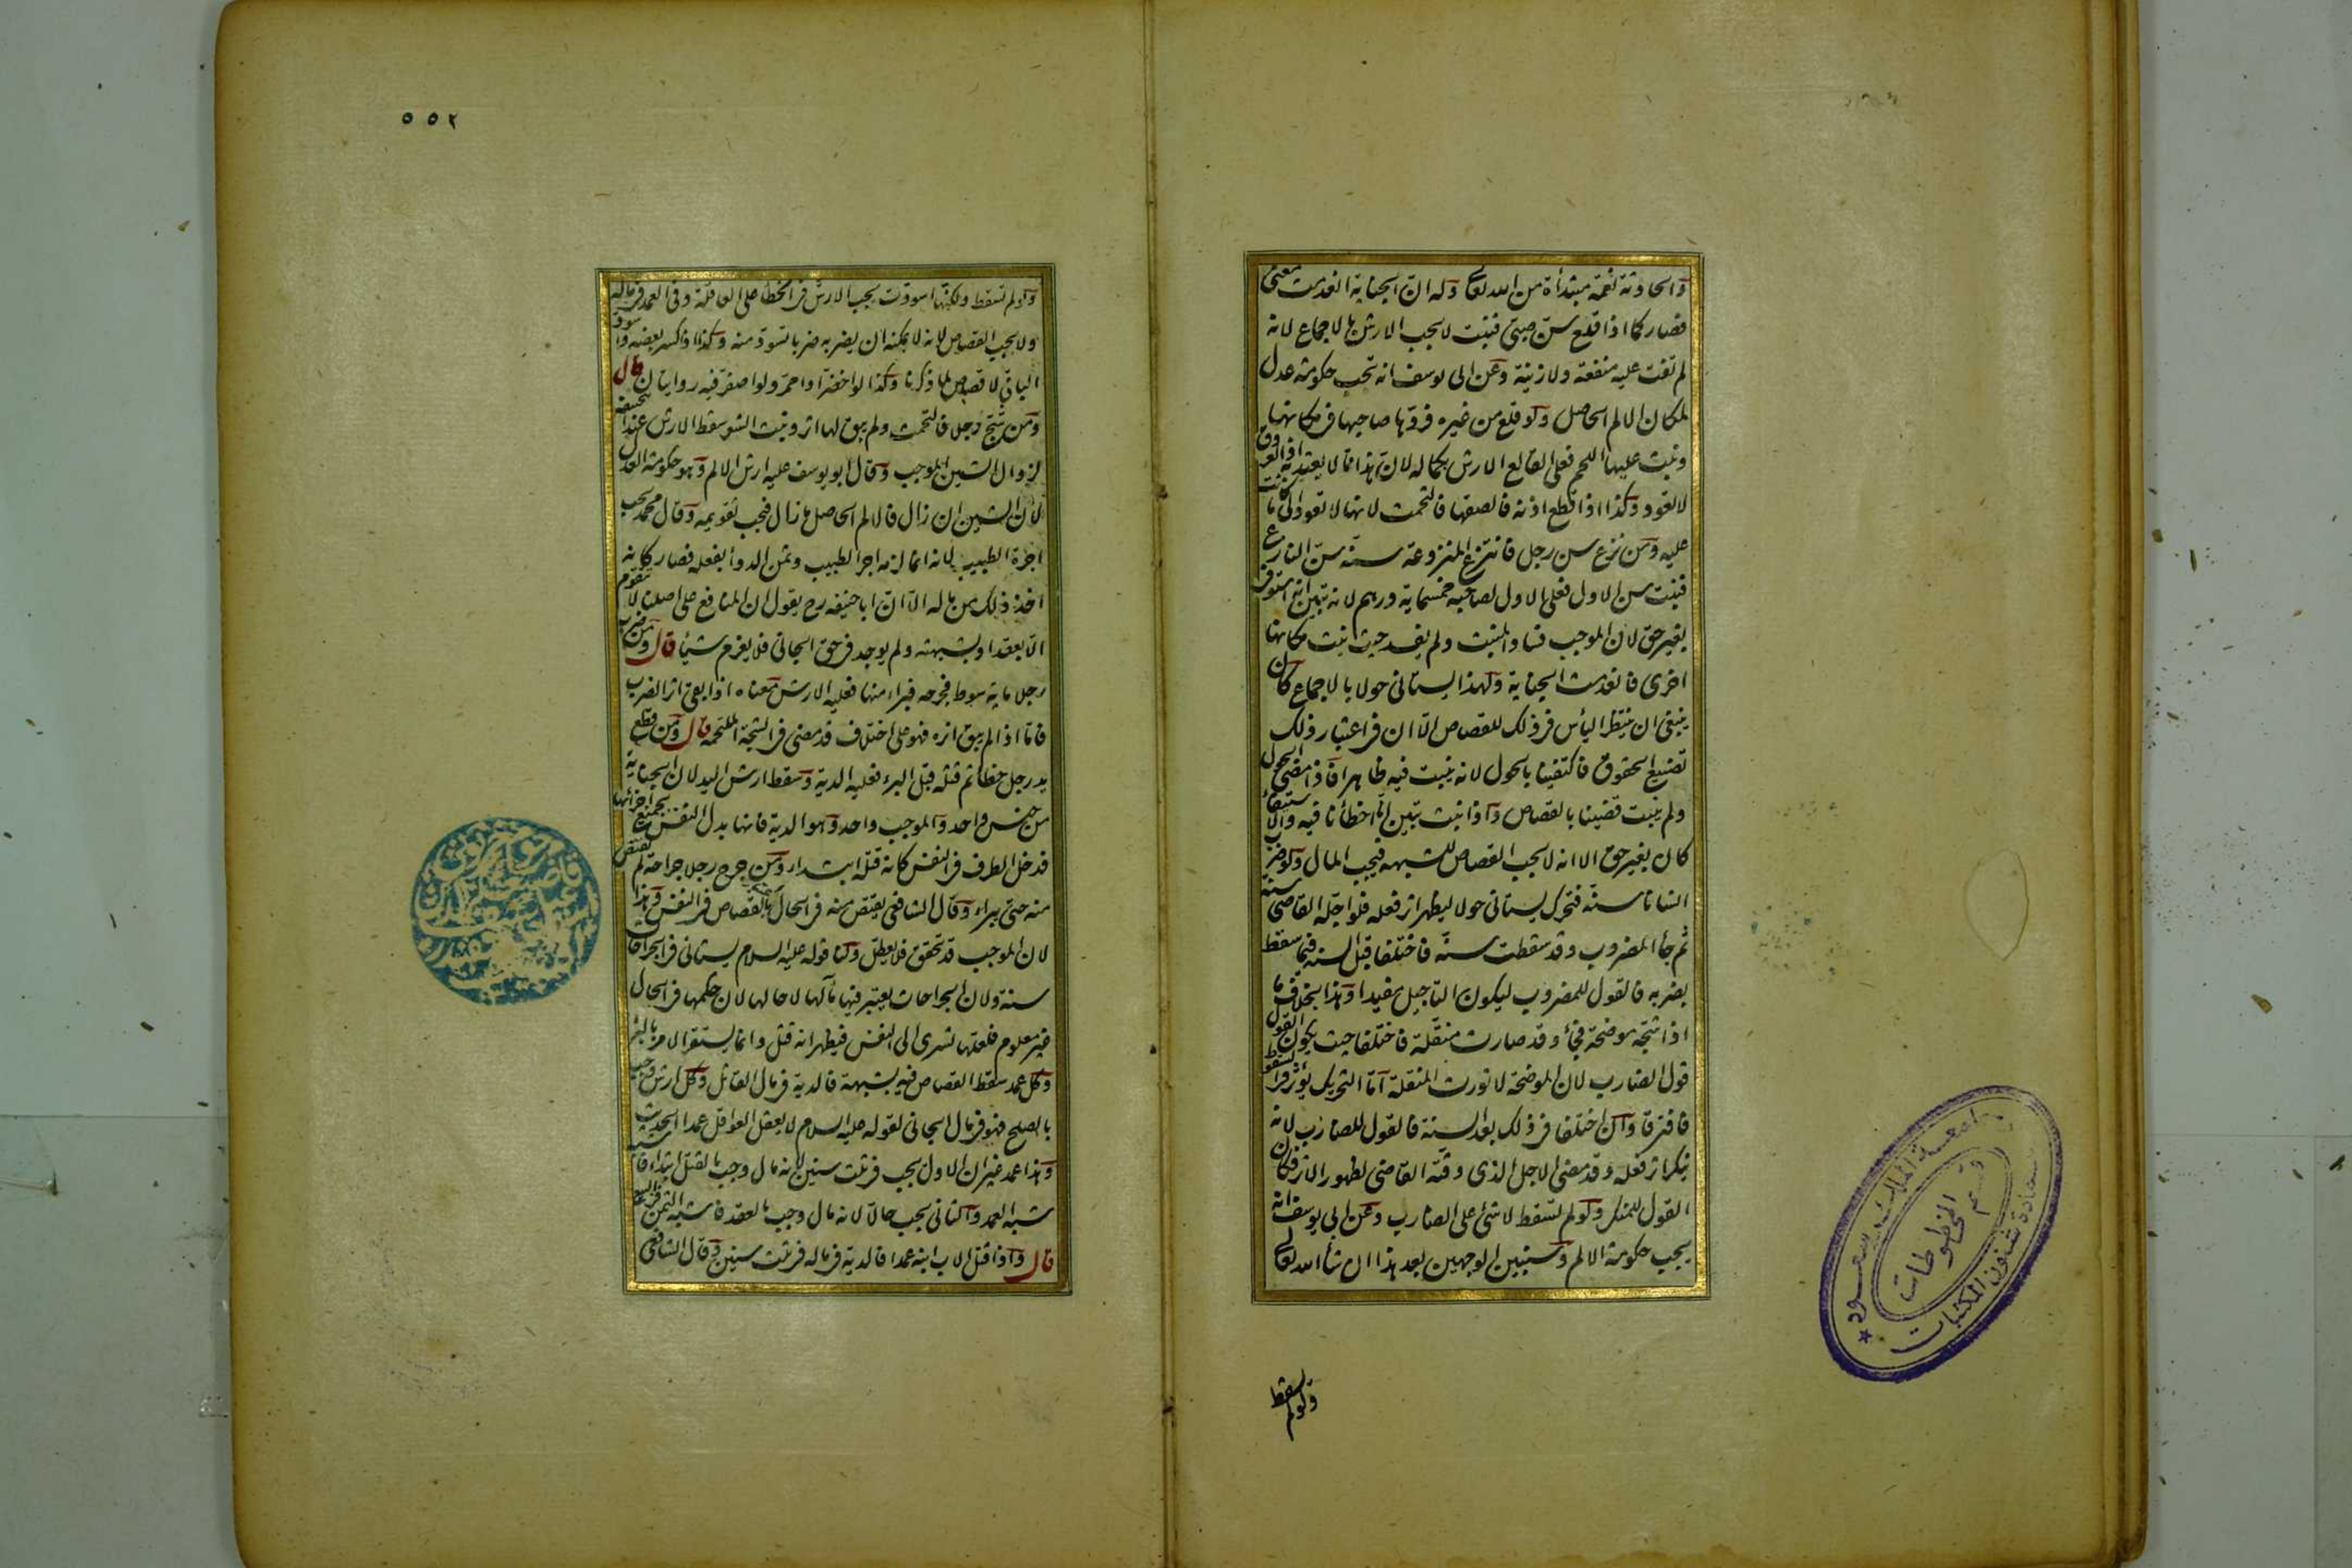 والحادثة نعمة مبتدأة من الله تعالى وله ان الجناية انعدمت معنى
فصار كما اذا قلع سن صبي فنبت لا يجب الارش بالاجماع لانه
لم تفت عليه منفعة ولا زينة وعن ابى يوسف انه تجب حكومة عدل
لمكان الالم الحاصل ولو قلع سن غيره فردها صاحبها فى مكانها
ونبت عليها اللحم فعلى القالع الارش بكماله لان هذا مما لا يعتد به اذ العروق
لا تعود وكذا اذا قطع اذنه فالصقها فالتحمت لانها لا تعود الى ما كانت
عليه ومن نزع سن رجل فانتزع المنزوعة سنه سن النازع
فنبت سن الاول فعلى الاول لصاحبه خمسماية درهم لانه تبين انه استوفى
بغير حق لان الموجب فساد المنبت ولم يفسد حيث نبت مكانها
اخرى فانعدمت الجناية ولهذا يستانى حولا بالاجماع وكان
ينبغى ان ينتظر اليأس فى ذلك للقصاص الا ان فى اعتبار ذلك
تضييع الحقوق فاكتفينا بالحول لانه ينبت فيه ظاهرا فاذا مضى الحول
ولم ينبت قضينا بالقصاص واذا نبت تبين انا اخطأنا فيه والاستيفاء
كان بغير حق الا انه لا يجب القصاص للشبهة فيجب المال ولو ضرب
انسانا سنه فتحرك يستانى حولا ليظهر اثر فعله فلو اجله القاضى سنة
ثم جأ المضروب وقد سقطت سنه فاختلفا قبل السنة فيما سقط
بضربه فالقول للمضروب ليكون التاجيل مفيدا وهذا بخلاف ما
اذا شجه موضحة فجأ وقد صارت منقلة فاختلفا حيث يكون القول
قول الضارب لان الموضحة لا تورث المنقلة اما التحريك يؤثر فى السقوط
فافترقا وان اختلفا فى ذلك بعد السنة فالقول للضارب لانه
ينكر اثر فعله وقد مضى الاجل الذى وقته القاضى لظهور الاثر فكان
القول للمنكر ولو لم تسقط لا شئ على الضارب وعن ابى يوسف انه
يجب حكومة الالم وسنبين الوجهين بعد هذا ان شأ الله تعالى
ولو لم تسقط
٥٥٢
ولو لم تسقط ولكنها اسودت يجب الارش فى الخطأ على العاقلة وفى العمد فى ماله
ولا يجب القصاص لانه لا يمكنه ان يضربه ضربا تسود منه وكذا اذا كسر بعضه واسود
الباقى لا قصاص لما ذكرنا وكذا لو اخضر او احمر ولو اصفر فيه روايتان قال
ومن شج رجلا فالتحمت ولم يبق لها اثر ونبت الشعر سقط الارش عند ابى حنيفة
لزوال الشين الموجب وقال ابو يوسف عليه ارش الالم وهو حكومة العدل
لان الشين ان زال فالالم الحاصل ما زال فيجب تقويمه وقال محمد يجب
اجرة الطبيب لانه انما لزمه اجر الطبيب وثمن الدوأ بفعله فصار كانه
اخذ ذلك من ماله الا ان ابا حنيفة رح يقول ان المنافع على اصلنا لا تتقوم
الا بعقد او بشبهة ولم يوجد فى حق الجانى فلا يغرم شيأ قال ومن ضرب
رجلا ماية سوط فجرحه فبراء منها فعليه الارش معناه اذا بقى اثر الضرب
فاما اذا لم يبق اثره فهو على اختلاف قد مضى فى الشجة الملتحمة قال ومن قطع
يد رجل خطأ ثم قتله قبل البرء فعليه الدية وسقط ارش اليد لان الجناية
من جنس واحد والموجب واحد وهو الدية فانها بدل النفس بجميع اجزائها
فدخل الطرف فى النفس كانه قتله ابتداء ومن جرح رجلا جراحة لم يقتص
منه حتى يبراء وقال الشافعى يقتص منه فى الحال اعتبارا بالقصاص فى النفس وهذا
لان الموجب قد تحقق فلا يعطل ولنا قوله عليه السلام يستانى فى الجراحات
سنة ولان الجراحات يعتبر فيها مآلها لا حالها لان حكمها فى الحال
غير معلوم فلعلها تسرى الى النفس فيظهر انه قتل وانما يستقر الامر بالبرء
وكل عمد سقط القصاص فيه بشبهة فالدية فى مال القاتل وكل ارش وجب
بالصلح فهو فى مال الجانى لقوله عليه السلام لا يعقل العواقل عمدا الحديث
وهذا عمد غير ان الاول يجب فى ثلث سنين لانه مال وجب بالقتل ابتداء فاشبه
شبه العمد والثانى يجب حالا لانه مال وجب بالعقد فاشبه الثمن فى البيع
قال واذا قتل الاب ابنه عمدا فالدية فى ماله فى ثلث سنين وقال الشافعى
جامعة الملك سعود
عمادة شئون المكتبات
قسم المخطوطات